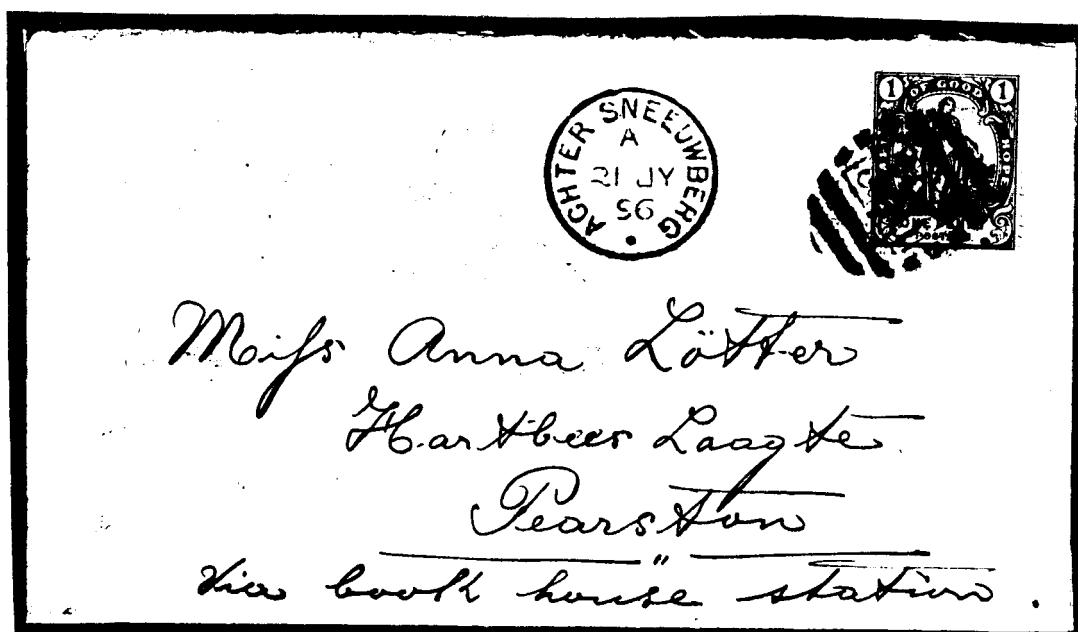 ACHTER SNEEUWBERG
A
21 JY
96
1 OF GOOD 1
HOPE
ONE
Miss Anna Lötter
Hartbees Laagte
Pearston
Via book house station.